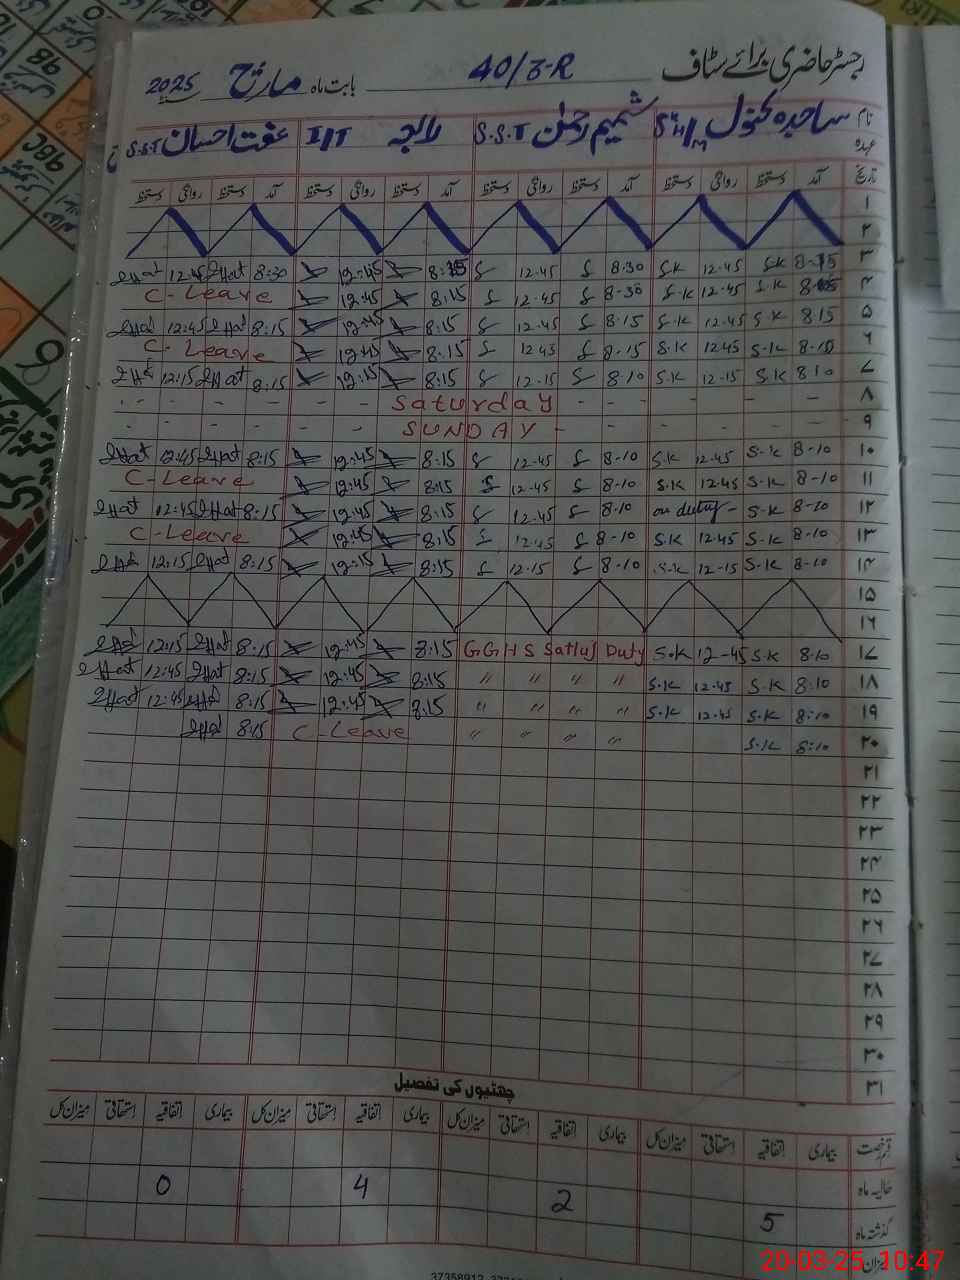 رجسٹر حاضری برائے سٹاف 40/3-R بابت ماہ مارچ 2025
نام ساجدہ کنول شمیم رحمٰن S.S.T رالجہ I/T عفت احسان S.S.T
عہدہ
تاریخ آمد دستخط روانگی دستخط آمد دستخط روانگی دستخط آمد دستخط روانگی دستخط آمد دستخط روانگی دستخط
۱
۲
۳ 8-15 S.K 12.45 S.K 8.30 S 12.45 S 8:15 12:45 8:30 Iffat 12:45 Iffat
۴ S.K 12.45 S.K 8-30 S 12.45 S 8:15 12:45 C-Leave
۵ 8.15 S.K 12.45 S.K 8.15 S 12.45 S 8:15 12:45 8:15 Iffat 12:45 Iffat
۶ 8-15 S.K 12.45 S.K 8-15 S 12.45 S 8:15 12:45 C-Leave
۷ 8.10 S.K 12-15 S.K 8-10 S 12-15 S 8:15 12:15 8:15 Iffat 12:15 Iffat
۸ Saturday
۹ SUNDAY
۱۰ 8-10 S.K 12.45 S.K 8-10 S 12.45 S 8:15 12:45 8:15 Iffat 12:45 Iffat
۱۱ 8-10 S.K 12.45 S.K 8-10 S 12.45 S 8:15 12:45 C-Leave
۱۲ 8-10 S.K on duty- 8-10 S 12.45 S 8:15 12:45 8:15 Iffat 12:45 Iffat
۱۳ 8-10 S.K 12.45 S.K 8-10 S 12.45 S 8:15 12:45 C-Leave
۱۴ 8-10 S.K 12-15 S.K 8-10 S 12-15 S 8:15 12:15 8:15 Iffat 12:15 Iffat
۱۵
۱۶
۱۷ 8.10 S.K 12-45 S.K GGHS Satluj Duty 8:15 12:45 8:15 Iffat 12:15 Iffat
۱۸ 8:10 S.K 12.45 S.K " " " " 8:15 12:45 8:15 Iffat 12:45 Iffat
۱۹ 8:10 S.K 12.45 S.K " " " " 8:15 12:45 8:15 Iffat 12:45 Iffat
۲۰ 8:10 S.K " " " " C-Leave 8:15 Iffat
۲۱
۲۲
۲۳
۲۴
۲۵
۲۶
۲۷
۲۸
۲۹
۳۰
۳۱
چھٹیوں کی تفصیل
قسم رخصت بیماری اتفاقیہ استحقاقی میزان کل بیماری اتفاقیہ استحقاقی میزان کل بیماری اتفاقیہ استحقاقی میزان کل بیماری اتفاقیہ استحقاقی میزان کل
حالیہ ماہ
گذشتہ ماہ 5 2 4 0
میزان
20-03-25 10:47